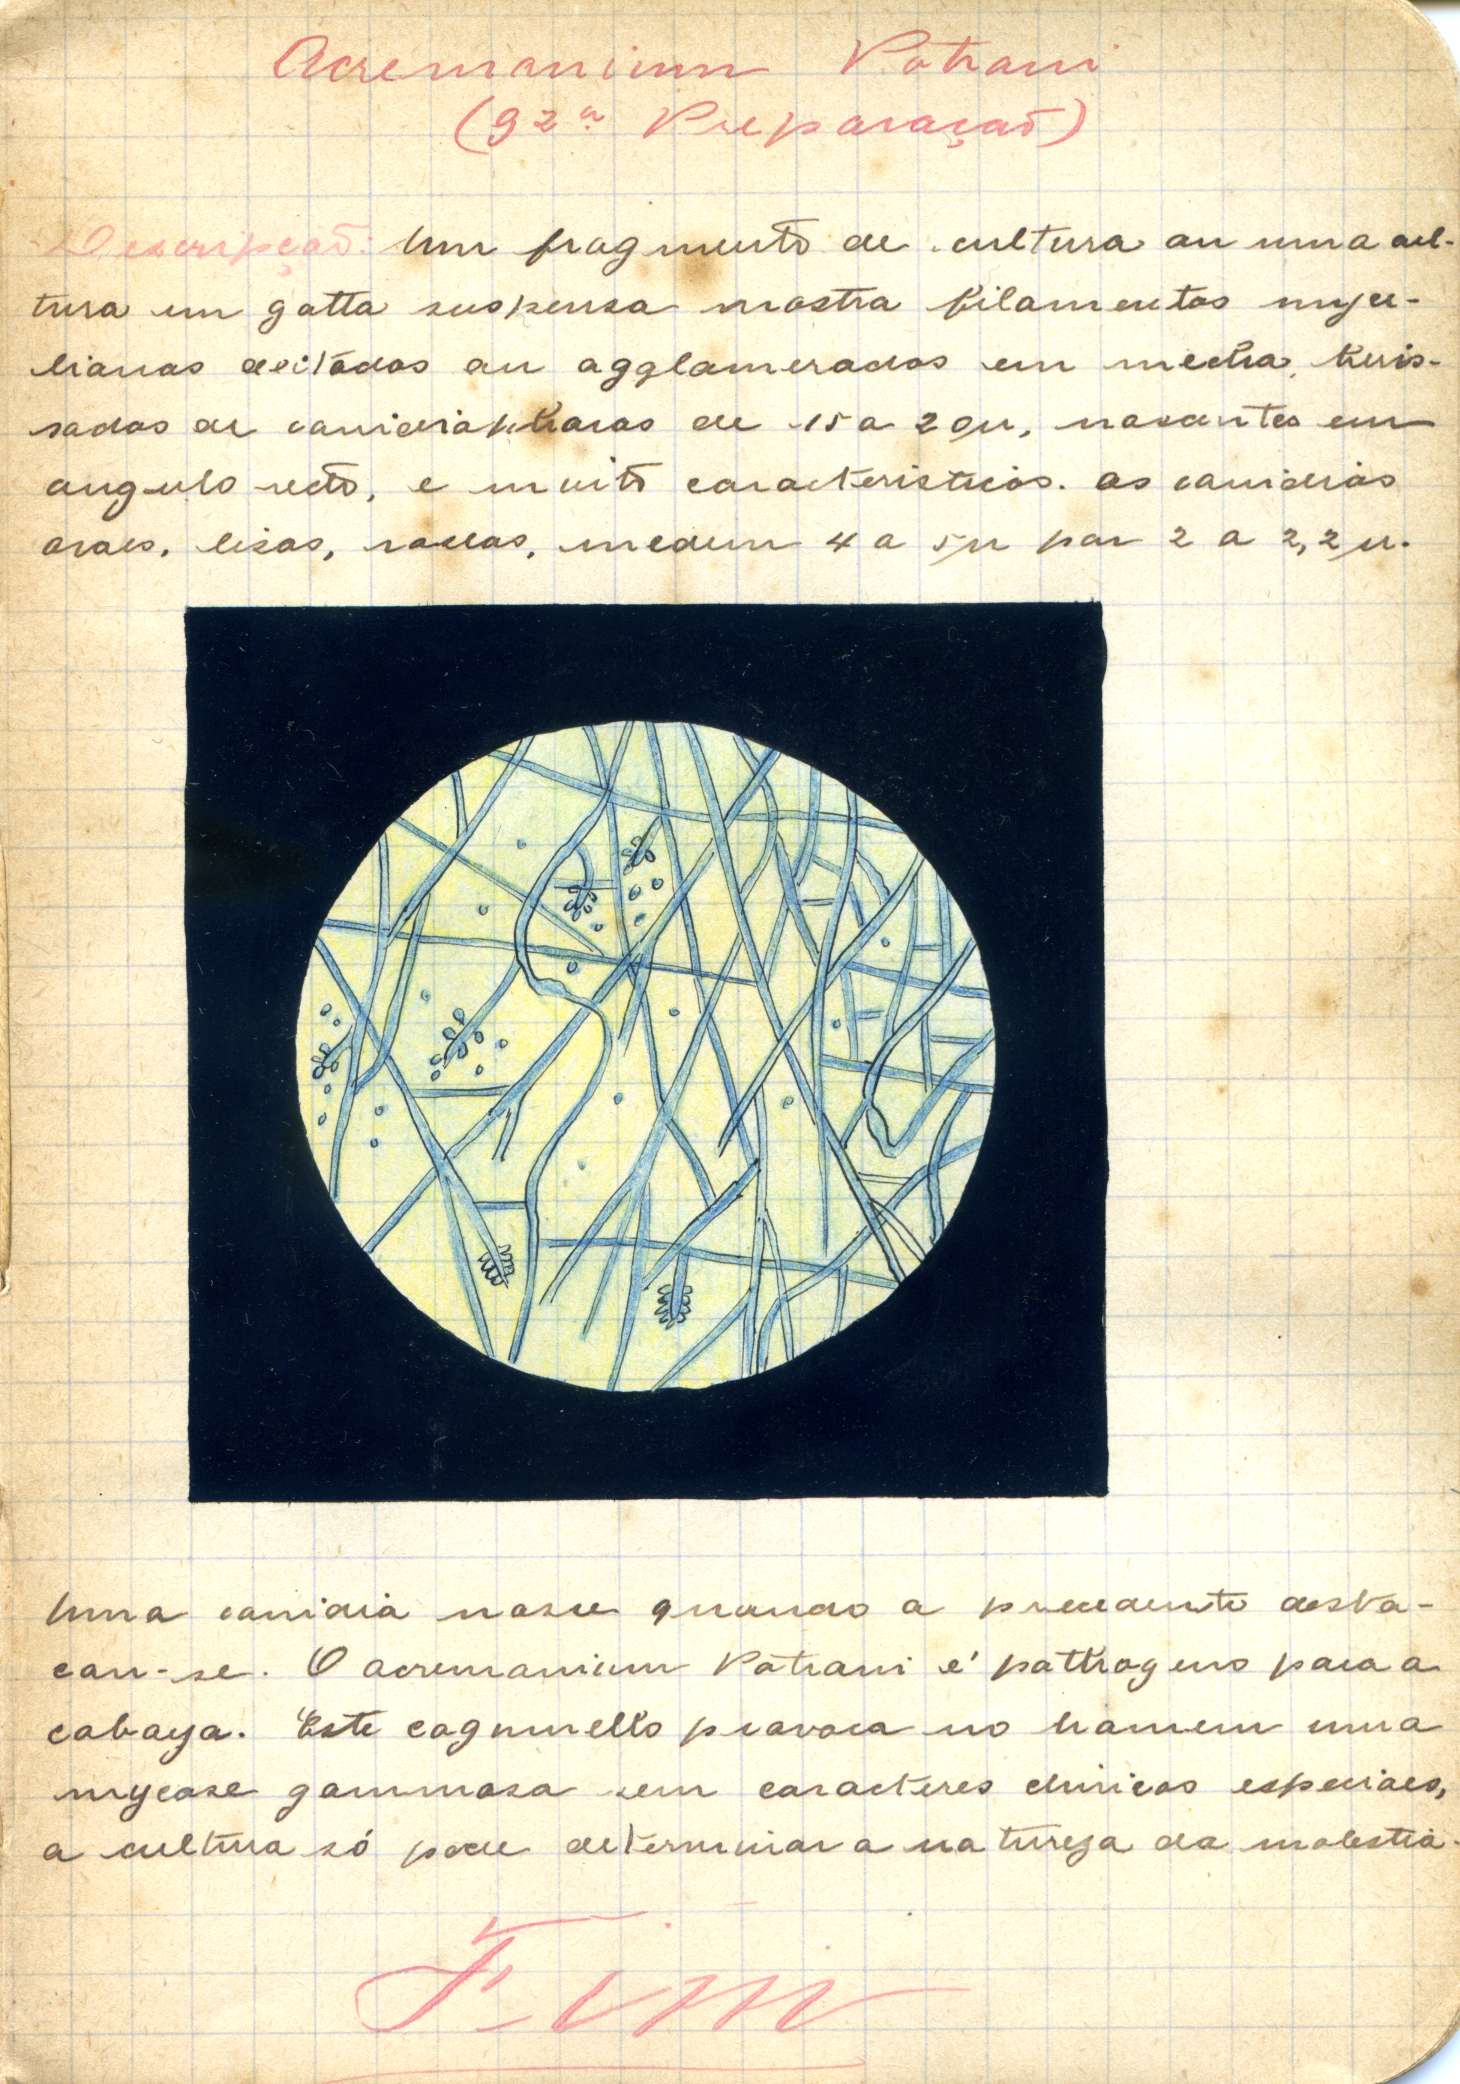 Acremonium Potroni
(92ª Preparação)
Descripção: Um fragmento de cultura ou uma cul-
tura em gotta suspensa mostra filamentos myce-
lianos deitados ou agglomerados em mecha, heris-
sados de conidiophoros de 15 a 20µ, nascentes em
angulo recto, e muito caracteristicos. As conidias
ovaes, lisas, roseas, medem 4 a 5µ por 2 a 2,2µ.
Uma conidia nasce quando a precedente desta-
cou-se. O acremonium Potroni é pathogeno para a
cobaya. Este cogumello provoca no homem uma
mycose gommosa sem caracteres clinicos especiaes,
a cultura só pode determinar a natureza da molestia.
Fim